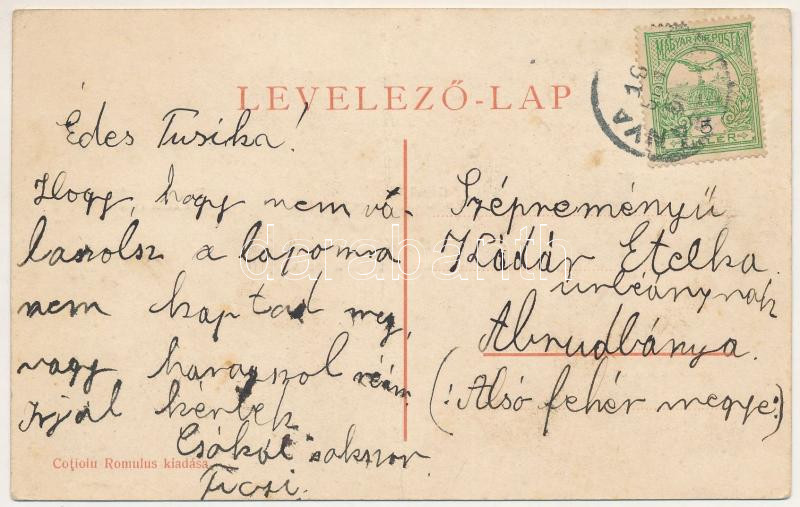 LEVELEZŐ-LAP
MAGYAR KIR. POSTA
5
Édes Tusika!
Hogy, hogy nem vá-
laszolsz a lapomra
nem kaptad meg,
vagy haragszol reám.
Irjál kérlek
Csókol sokszor
Tusi.
Szépreményü
Kádár Etelka
urleánynak
Abrudbánya.
(: Alsó fehér megye:)
Coțioiu Romulus kiadása
darabanth